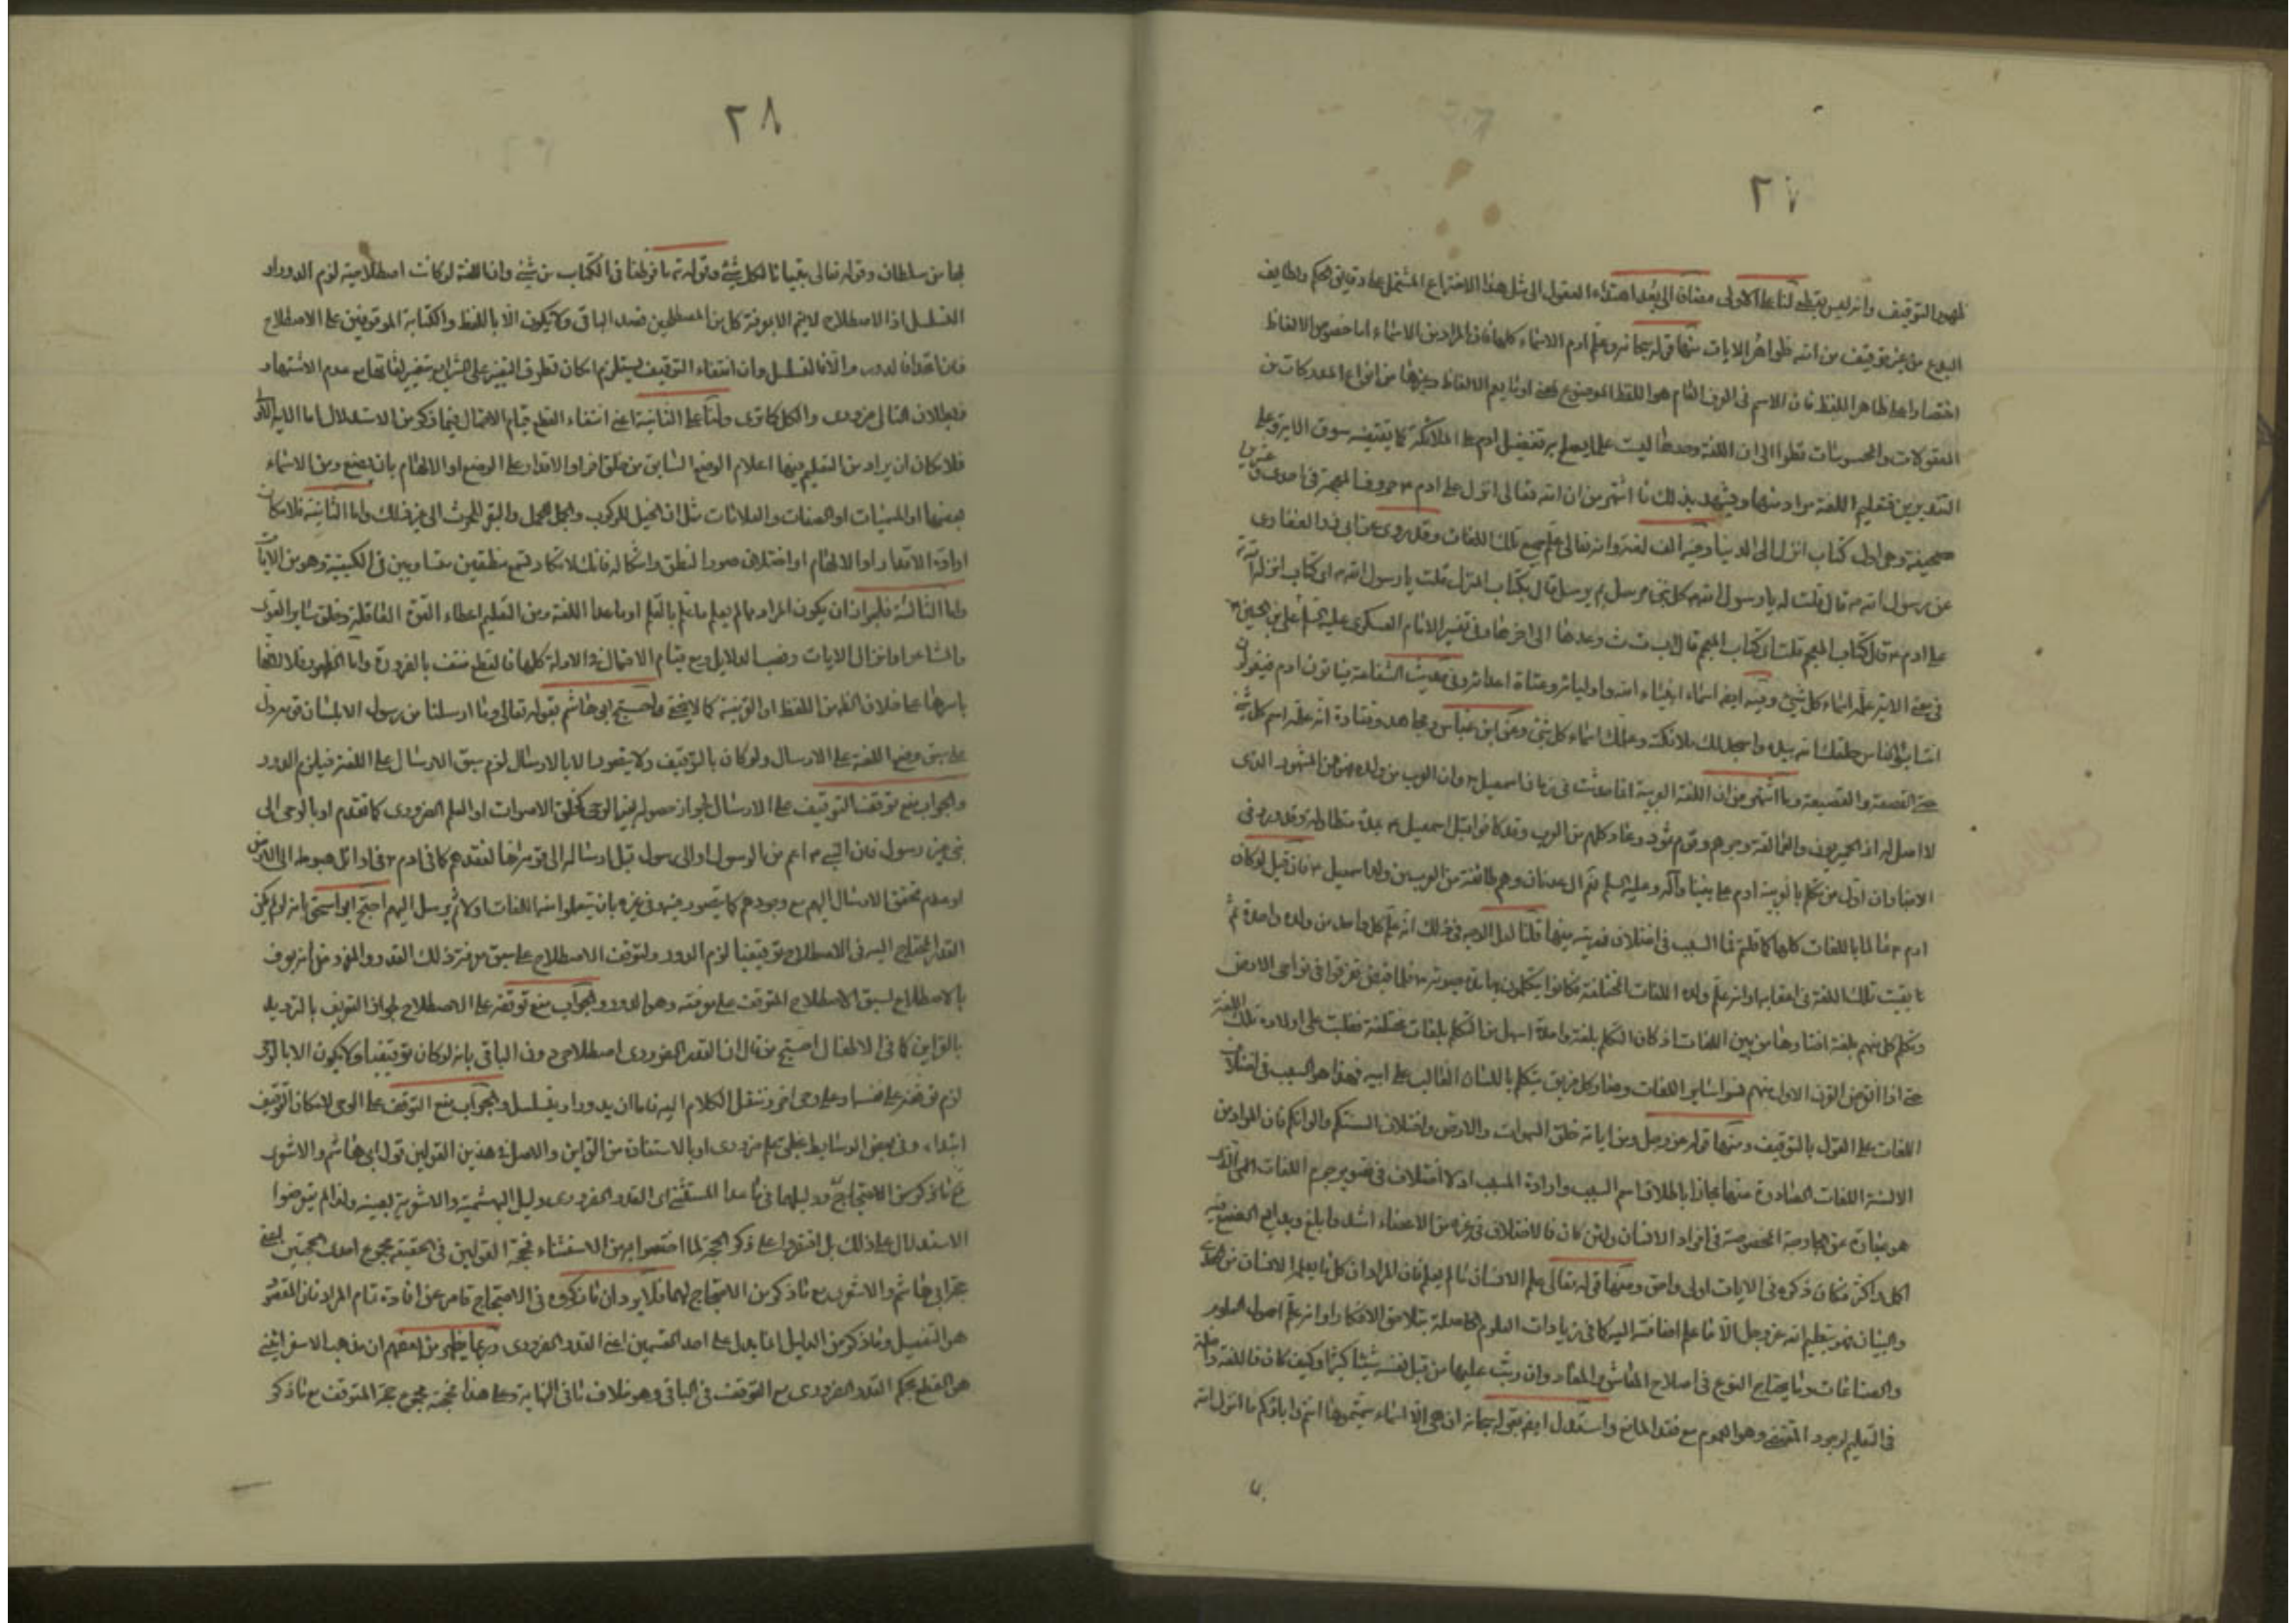 ٢٧
ظهور التوقيف وانه ليس بقطعي لنا على الاولى مضافا الى بعد اهتداء العقول الى مثل هذا الاختراع المشتمل على دقايق الحكم ولطايف
البدع من غير توقيف من الله ظواهر الايات منها قوله سبحانه وعلم ادم الاسماء كلها فان المراد من الاسماء اما خصوص الالفاظ
اختصارا على ظاهر اللفظ فان الاسم في العرف العام هو اللفظ الموضوع لمعنى او ما يعم الالفاظ وغيرها من انواع المدركات من
المعقولات والمحسوسات نظرا الى ان اللغة وحدها ليست علما يصلح به تفضيل ادم على الملائكة كما يقتضيه سوق الاية وعلى
التقديرين فتعليم اللغة مراد منها ويشهد بذلك ما اشتهر من ان الله تعالى انزل على ادم حروف المعجم في احدى وعشرين
صحيفة وهي اول كتاب انزل الى الدنيا وفيه الف لغة وانه تعالى علمه جميع تلك اللغات وقد روى عن ابي ذر الغفارى
عن رسول الله ص قال قلت له يا رسول الله كل نبي مرسل بم يرسل قال بكتاب المنزل قلت يا رسول الله اى كتاب انزله الله
على ادم قال كتاب المعجم قلت اى كتاب المعجم قال اب ت ث وعدها الى اخرها وفي تفسير الامام العسكرى عليه السلم عن علي بن الحسين
في معنى الاية علمه اسماء كل شيء وفيه ايضا اسماء انبياء الله واوليائه وعتاة اعدائه وفي حديث الشفاعة فياتون ادم فيقولون
انت ابو الناس خلقك الله بيده واسجد لك ملائكته وعلمك اسماء كل شيء وعن ابن عباس ومجاهد وقتادة انه علمه اسم كل شيء
حتى القصعة والقصيعة وما اشتهر من ان اللغة العربية انما حدثت في زمان اسمعيل وان العرب من ولده فهو من المشهور الذى
لا اصل له اذ الحميريون والعمالقة وجرهم وقوم ثمود وعاد كلهم من العرب وقد كانوا قبل اسمعيل بمدة متطاولة وقد ورد في
الاخبار ان اول من تكلم بالعربية ادم على نبينا وآله وعليه السلم ثم ال عدنان وهم طائفة من العرب من ولد اسمعيل فان قيل لو كان
ادم عالما باللغات كلها كما قلتم فما السبب في اختلاف ذريته فيها قلنا لعل الوجه في ذلك انه علم كل واحد من ولده واحدة ثم
بقيت تلك اللغة في اعقابها او انه علم ولده اللغات المختلفة فكانوا يتكلمون بها مدة حيوته فلما قبض تفرقوا في نواحى الارض
وتكلم كل منهم بلغة اختارها من بين اللغات اذ كان التكلم بلغة واحدة اسهل من التكلم بلغات مختلفة فغلبت على اولاده تلك اللغة
حتى اذا انقرض القرن الاول منهم نسوا ساير اللغات وصار كل فريق يتكلم باللسان الغالب على ابيه فهذا هو السبب في اختلاف
اللغات على القول بالتوقيف ومنها قوله عز وجل ومن اياته خلق السموات والارض واختلاف السنتكم والوانكم فان المراد من
الالسنة اللغات الصادرة منها مجازا باطلاق اسم السبب وارادة المسبب اذ لا اختلاف في جرم اللغات الذى
هو عبارة عن الجارحة المخصوصة في افراد الانسان ولئن كان فالاختلاف في غيره من الاعضاء اشد وابلغ وبدايع الصنع فيه
اكمل واكثر فكان ذكره في الايات اولى واحق ومنها قوله تعالى علم الانسان ما لم يعلم فان المراد ان كل ما يعلمه الانسان من
والبيان فهو بتعليم الله عز وجل الا ما علم اضافته اليه كما في زيادات العلوم الحاصلة بتلاحق الافكار او انه علم اصول العلوم
والصناعات وما يحتاج النوع في اصلاح المعاش والمعاد وان رتب عليها من قبل نفسه شيئا كثيرا وكيف كان فاللغة داخلة
في التعليم لوجود المقتضي وهو العموم مع فقد المانع واستدل ايضا بقوله سبحانه ان هي الا اسماء سميتموها انتم واباؤكم ما انزل الله
٢٨
بها من سلطان وقوله تعالى تبيانا لكل شيء وقوله ما فرطنا في الكتاب من شيء وان اللغة لو كانت اصطلاحية لزم الدور او
التسلسل اذ الاصطلاح لا يتم الا بمعرفة كل من المصطلحين قصد الباقي ولا يكون الا باللفظ والكتابة الموقوفين على الاصطلاح
فان اتحدا فالدور والا فالتسلسل وان انتفاء التوقيف يستلزم امكان تطرق التغيير على الشرايع بتغيير لغاتها مع عدم الاشتهار
فبطلان التالى ضرورى والكل كما ترى ولنا على الثانية اعني انتفاء القطع قيام الاحتمال فيما ذكر من الاستدلال اما الاية الاولى
فلامكان ان يراد من التعليم فيها اعلام الوضع السابق من خلق اخر او الاقدار على الوضع او الالهام بان يضع ومن الاسماء
بعضها او المسميات او الصفات والعلامات مثل ان الخيل للركوب والجمل للحمل والبقر للحرث الى غير ذلك واما الثانية فلامكان
ارادة الاقدار او الالهام او اختلاف صور النطق واشكاله فانك لا تكاد تسمع منطقين متساويين في الكيفية وهو من الايات
واما الثالثة فلجواز ان يكون المراد بما لم يعلم ما علم بالقلم او ما عدا اللغة ومن التعليم اعطاء القوة العاقلة وخلق ساير القوى
والمشاعر وانزال الايات ونصب الدلايل ومع قيام الاحتمال في الادلة كلها فالقطع منتف بالضرورة واما الظهور فلانها
باسرها على خلاف الظ من اللفظ او القرينة كما لا يخفى واحتج ابي هاشم بقوله تعالى وما ارسلنا من رسول الا بلسان قومه دل
على سبق وضع اللغة على الارسال ولو كان بالتوقيف ولا يتصور الا بالارسال لزم سبق الارسال على اللغة فيلزم الدور
والجواب منع توقف التوقيف على الارسال لجواز حصوله بغير الوحي كخلق الاصوات او العلم الضرورى كما تقدم او بالوحى الى
نبي غير رسول فان النبي اعم من الرسول او الى رسول قبل ارساله الى قومه اما لفقدهم كما في ادم في اوائل هبوطه الى الارض
او عدم تحقق الارسال اليهم مع وجودهم كما يتصور فيه وفي غيره بان يتعلموا منه اللغات اولا ثم يرسل اليهم احتج ابي اسحق بانه لو لم يكن
القدر المحتاج اليه في الاصطلاح توقيفيا لزم الدور لتوقف الاصطلاح على سبق معرفة ذلك القدر والمفروض انه يعرف
بالاصطلاح لسبق الاصطلاح المتوقف على معرفته وهو الدور والجواب منع توقفه على الاصطلاح لجواز التعريف بالترديد
بالقراين كما في الاطفال احتج من قال ان القدر الضرورى اصطلاحى دون الباقي بانه لو كان توقيفيا ولا يكون الا بالوحى
لزم توقفه على نفسه او على وحى اخر وننقل الكلام اليه فاما ان يدور او يتسلسل والجواب منع التوقف على الوحى لامكان التوقيف
ابتداء وفي بعض الوسايط بخلق علم ضرورى او بالاستفادة من القراين والاصل في هذين القولين قول ابي هاشم والاشعرى
مع ما ذكر من الاحتجاج ودليلهما في ما عدا المستثنى اى القدر الضرورى دليل البهشمية والاشعرية بعينه ولذا لم يتعرضوا
الاستدلال على ذلك بل اقتصروا على ذكر الحجة لما اختصوا به من الاستثناء فحجة القولين في الحقيقة مجموع احدى الحجتين اعني
حجة ابي هاشم والاشعرى مع ما ذكر من الاحتجاج لهما فلا يرد ان ما ذكروه في الاحتجاج قاصر عن افادة تمام المراد فان المقصود
هو التفصيل وما ذكر من الدليل انما يدل على احد القسمين اعني القدر الضرورى وربما يظهر من بعضهم ان مذهب الاسفرايني
هو القطع بحكم القدر الضرورى مع التوقف في الباقي وهو خلاف ما في النهاية وعلى هذا فحجته مجموع حجة المتوقف مع ما ذكر